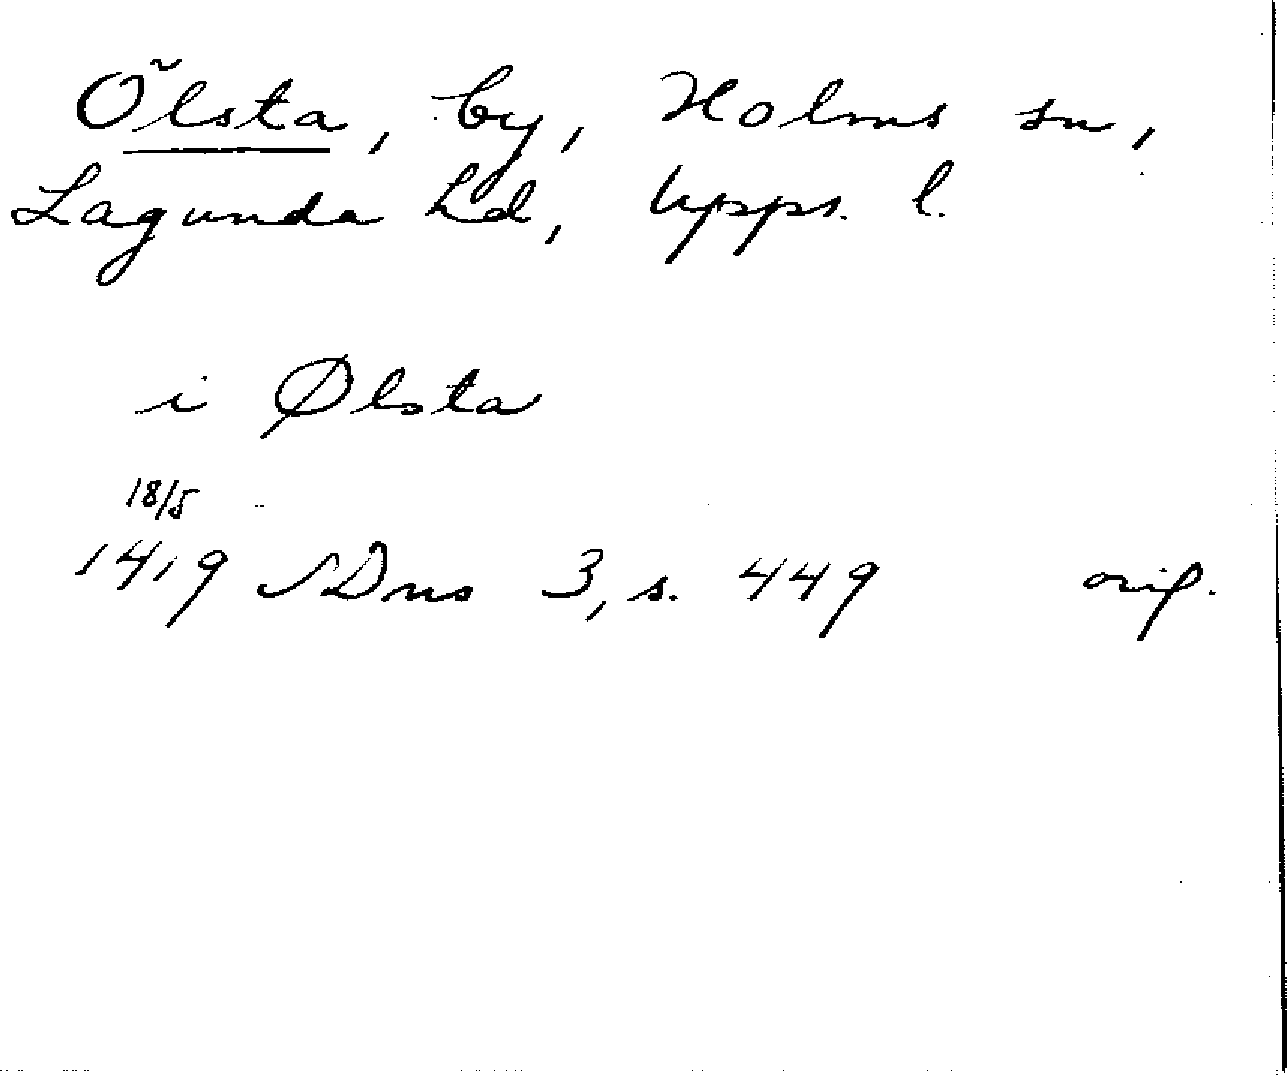 Ölsta, by, Holms sn,
Lagunda hd, Upps. l.
i Ølsta
18/5
1419 SDns 3, s. 449 orig.